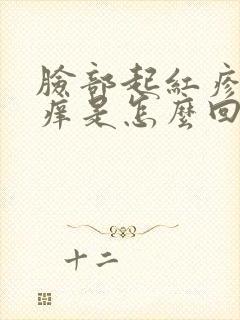 臉部起紅疹
癢是怎麼回
十二